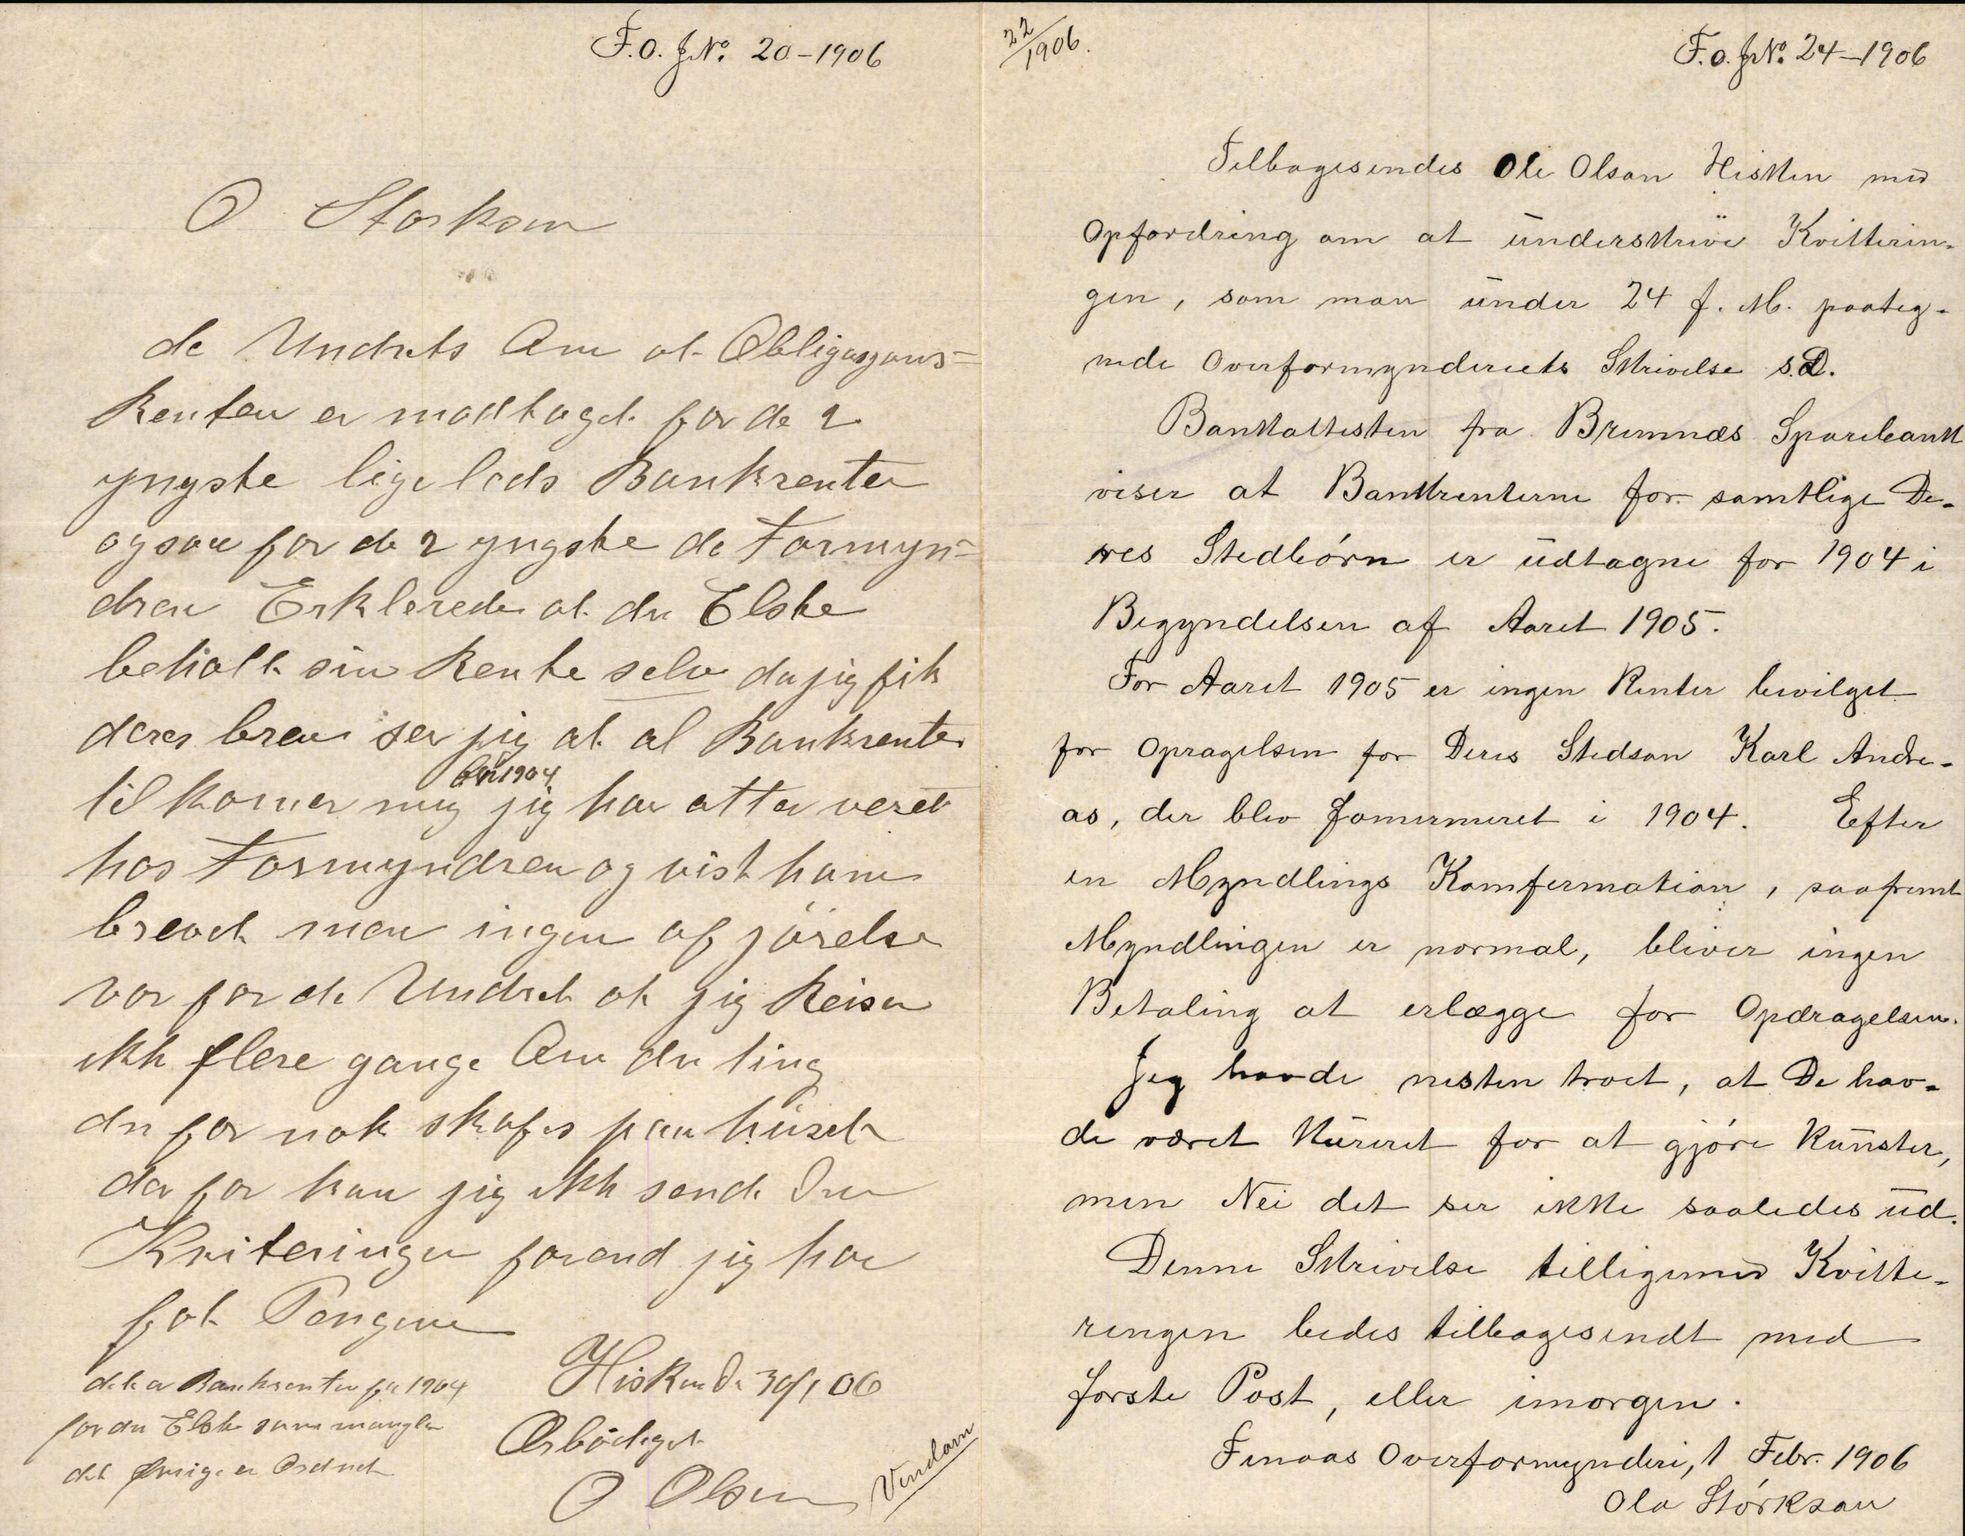 F.O. J№. 20-1906
O Storksen
de Undrets Om at Obligasjons-
Renten er modtaget for de 2
yngste ligeleds Bankrenter
ogsaa for de 2 yngste de Formyn-
dren Erklerede at den Elste
beholt sin Rente selv da jeg fik
deres brev ser jeg at al Bankrenter
for 1904
tilkomer meg jeg har atter veret
hos Formyndren og vist ham
brevet men ingen afjörelse
vor for de Undret at jeg Reiser
ikk flere gange Om den ting
den for nok skafes paa huset
der for kan jeg ikk sende Den
Kviteringen forend jeg har
fot Pengene
Hisken De 30/1 06
det er Bankrenten for 1904
for den Elste som mangler
det övrige er Ordnet
Ærbödigst
O Olsen
Vendam
22/1906.
F.O. J№. 24-1906
Tilbagesendes Ole Olson Hisken med
Opfordring om at underskrive Kvitterin-
gen, som man under 24 f. M. paateg-
nede Overformynderiets Skrivelse s.D.
Bankattesten fra Bremnæs Sparebank
viser at Bankrenterne for samtlige De-
res Stedbórn er udtagne for 1904 i
Begyndelsen af Aaret 1905.
For Aaret 1905 er ingen Renter bevilget
for Opragelsen for Deres Stedsøn Karl Andre-
as, der blev fomermeret i 1904. Efter
en Myndlings Komfermation, saafremt
Myndlingen er normal, bliver ingen
Betaling at erlægge for Opdragelsen.
Jeg havde nesten troet, at De hav-
de været kureret for at gjóre Kunster,
men Nei det ser ikke saaledes ud.
Denne Skrivelse tilligemed Kvitte-
ringen bedes tilbagesendt med
fórste Post, eller imorgen.
Finaas Overformynderi, 1 Febr. 1906
Ola Stórkson